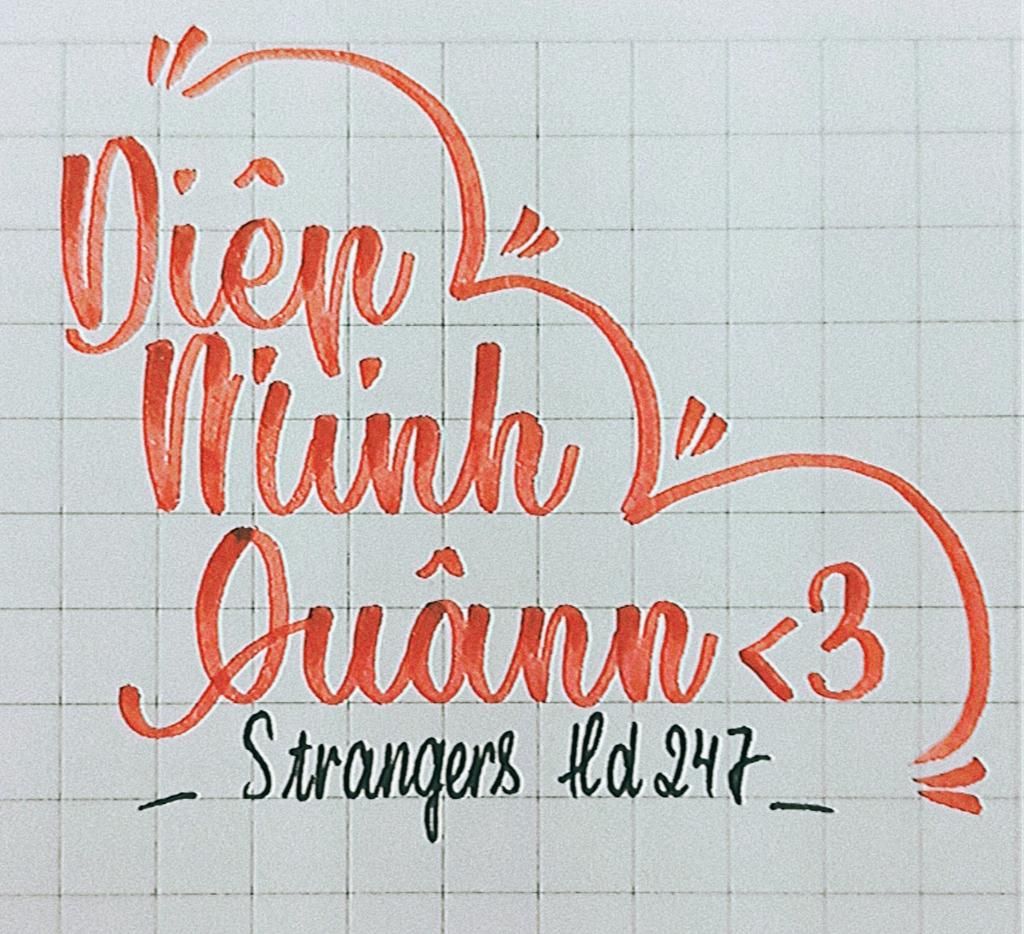 Diêp
Minh
Quânn <3
_ Strangers Hd 247 _